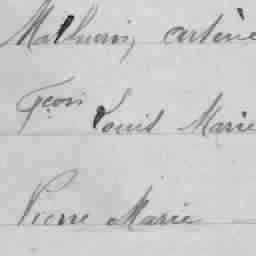 Mathurin, artène
Fçois Louis Marie
Pierre Marie